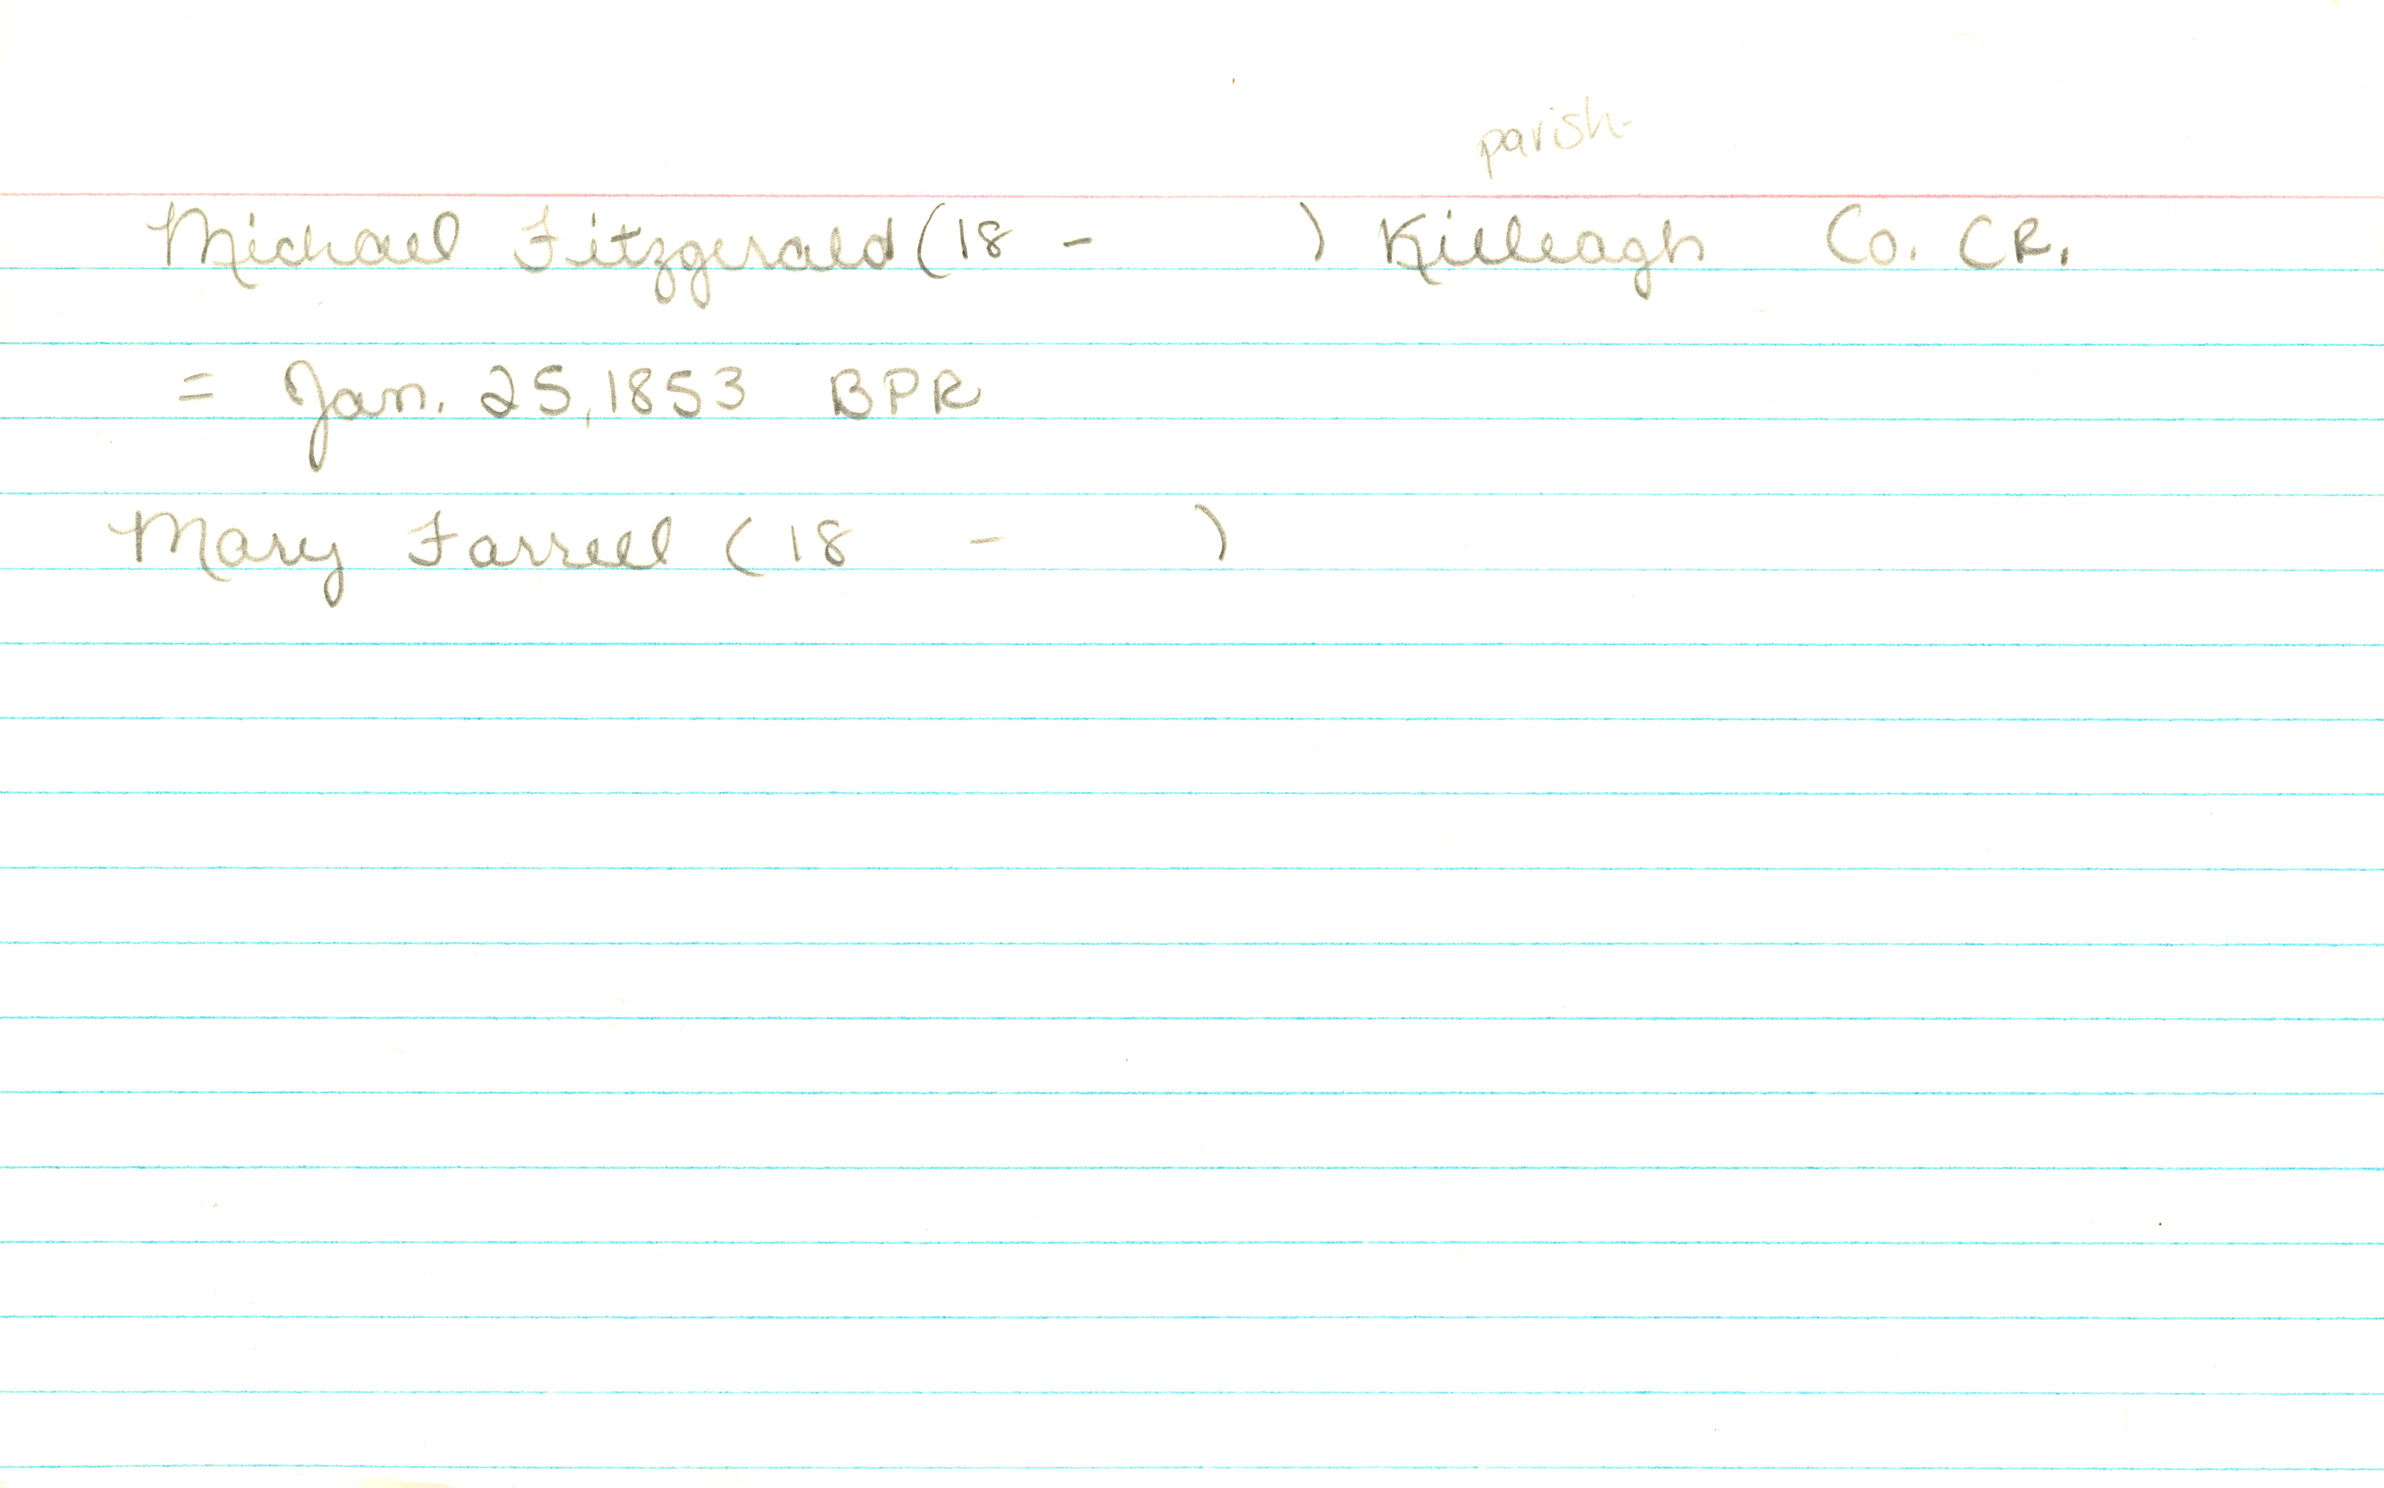 parish
Michael Fitzgerald (18 - ) Killeagh Co. CR.
= Jan. 25, 1853 BPR
Mary Farrell (18 - )